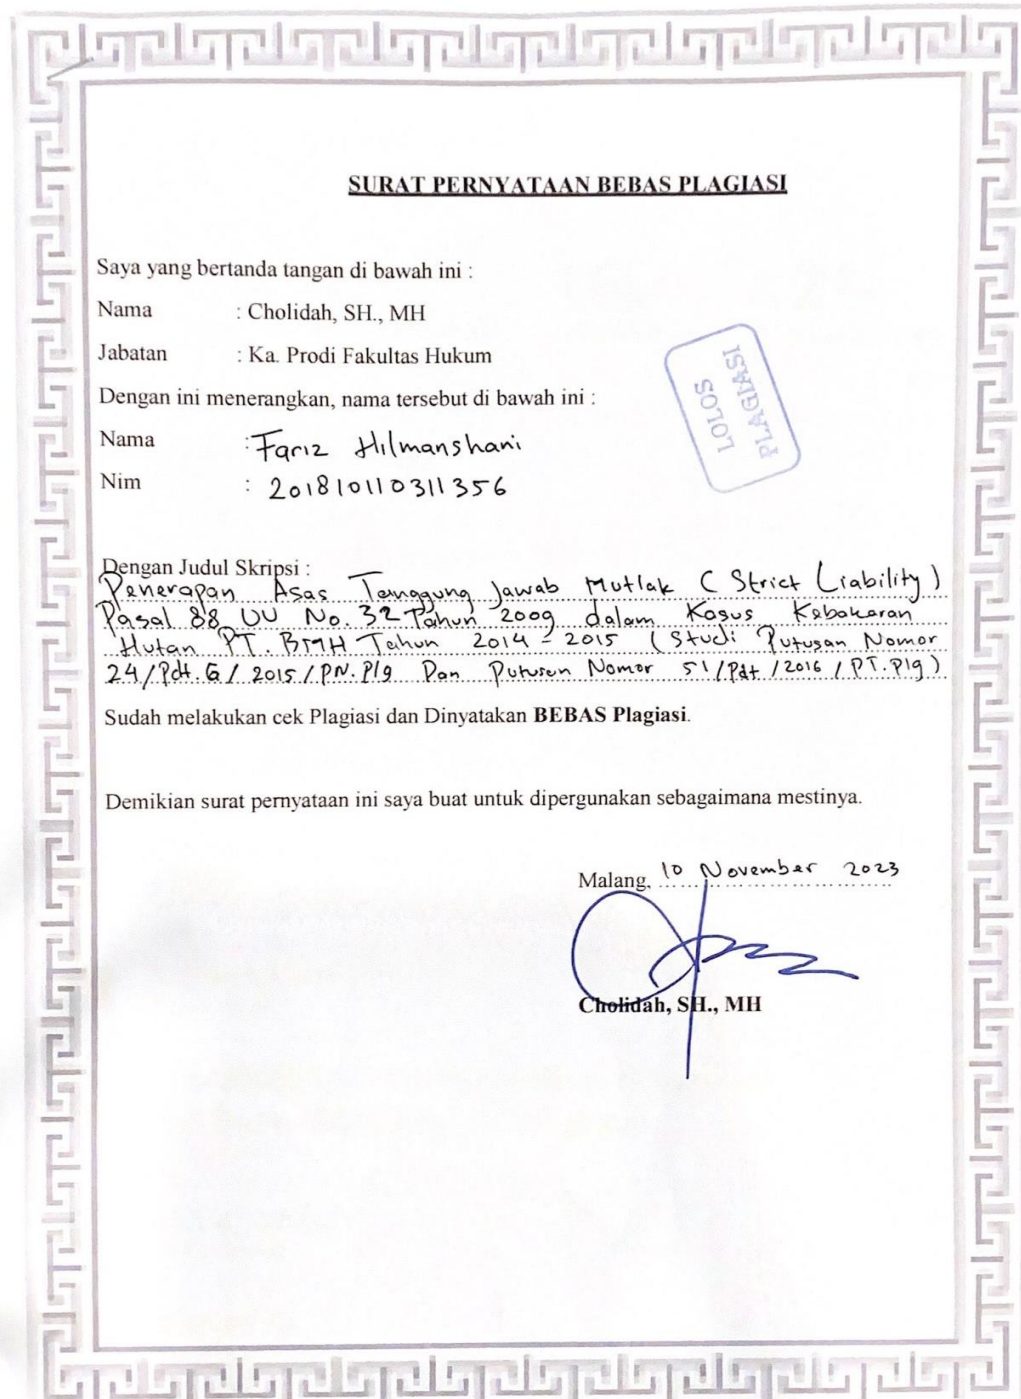 SURAT PERNYATAAN BEBAS PLAGIASI
Saya yang bertanda tangan di bawah ini :
Nama : Cholidah, SH., MH
Jabatan : Ka. Prodi Fakultas Hukum
Dengan ini menerangkan, nama tersebut di bawah ini :
Nama : Fariz Hilmanshani
Nim : 201810110311356
LOLOS
PLAGIASI
Dengan Judul Skripsi :
Penerapan Asas Tanggung Jawab Mutlak (Strict Liability)
Pasal 88 UU No. 32 Tahun 2009 dalam Kasus Kebakaran
Hutan PT. BMH Tahun 2014 - 2015 (Studi Putusan Nomor
24/Pdt.G/2015/PN.Plg Dan Putusan Nomor 51/Pdt/2016/PT.Plg)
Sudah melakukan cek Plagiasi dan Dinyatakan BEBAS Plagiasi.
Demikian surat pernyataan ini saya buat untuk dipergunakan sebagaimana mestinya.
Malang, 10 November 2023
Cholidah, SH., MH